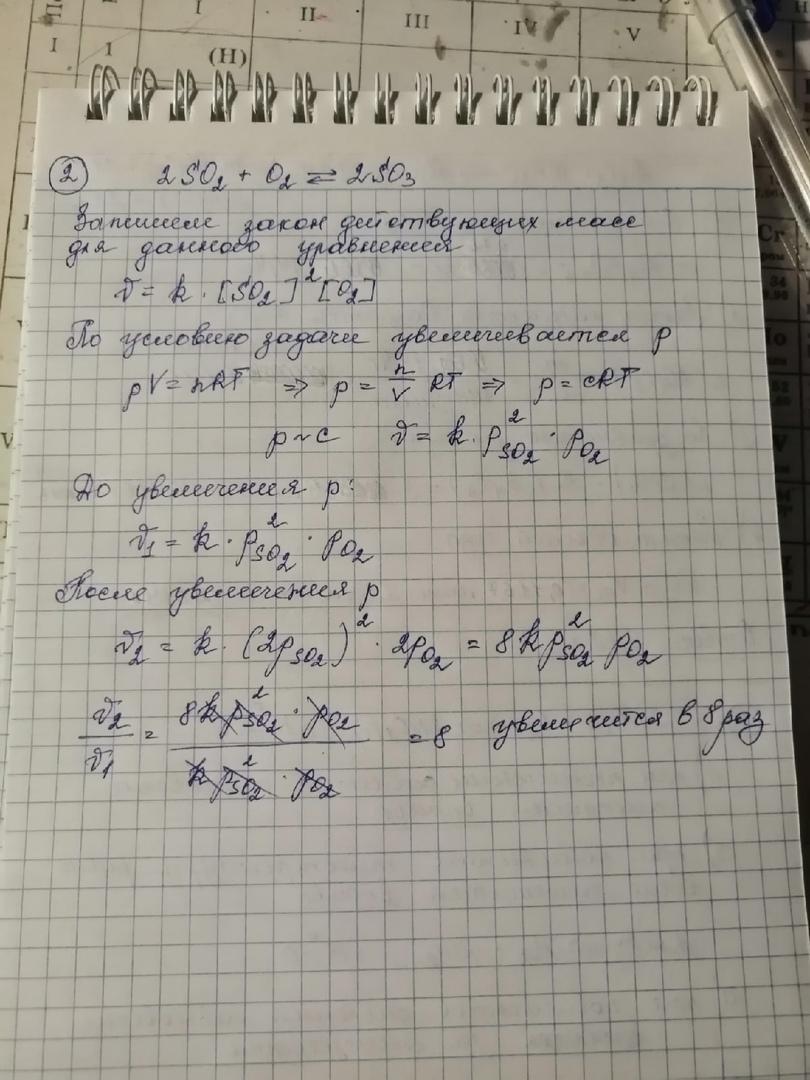 I II III IV V
I I (H)
Cr
34
② 2SO₂ + O₂ ⇌ 2SO₃
Запишем закон действующих масс
для данного уравнения
v = k · [SO₂]² [O₂]
По условию задачи увеличивается p
pV = nRT ⇒ p = n/V RT ⇒ p = cRT
p ~ c v = k · p²SO₂ · pO₂
До увеличения p:
v₁ = k · p²SO₂ · pO₂
После увеличения p
v₂ = k · (2pSO₂)² · 2pO₂ = 8kp²SO₂ pO₂
v₂/v₁ = 8kp²SO₂ · pO₂ / k p²SO₂ · pO₂ = 8 увеличится в 8 раз